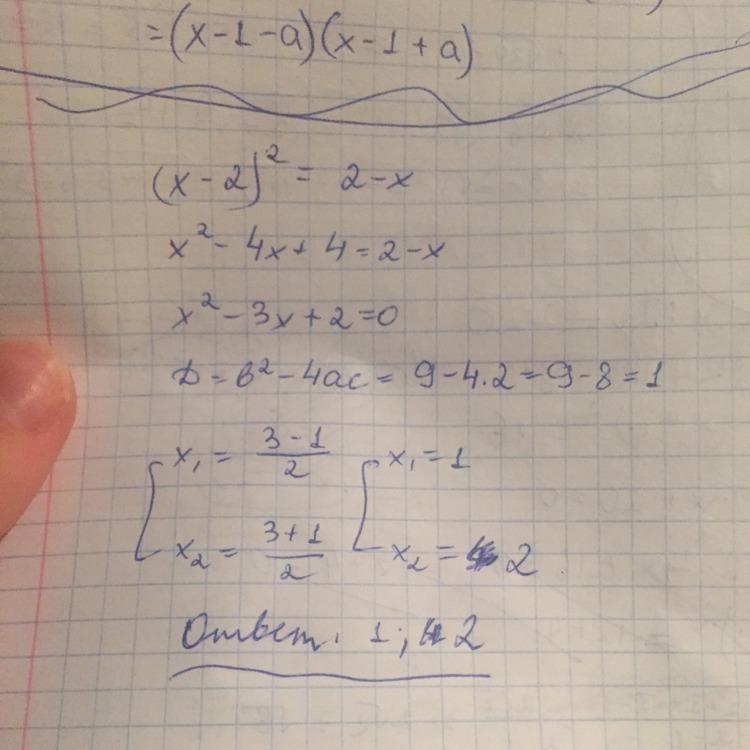 =(x-1-a)(x-1+a)
(x-2)²= 2-x
x²- 4x+ 4=2-x
x²-3x+2=0
D=b²-4ac= 9-4.2=9-8=1
x₁= (3-1)/2 x₁=1
x₂= (3+1)/2 x₂= 2
Ответ. 1; 2